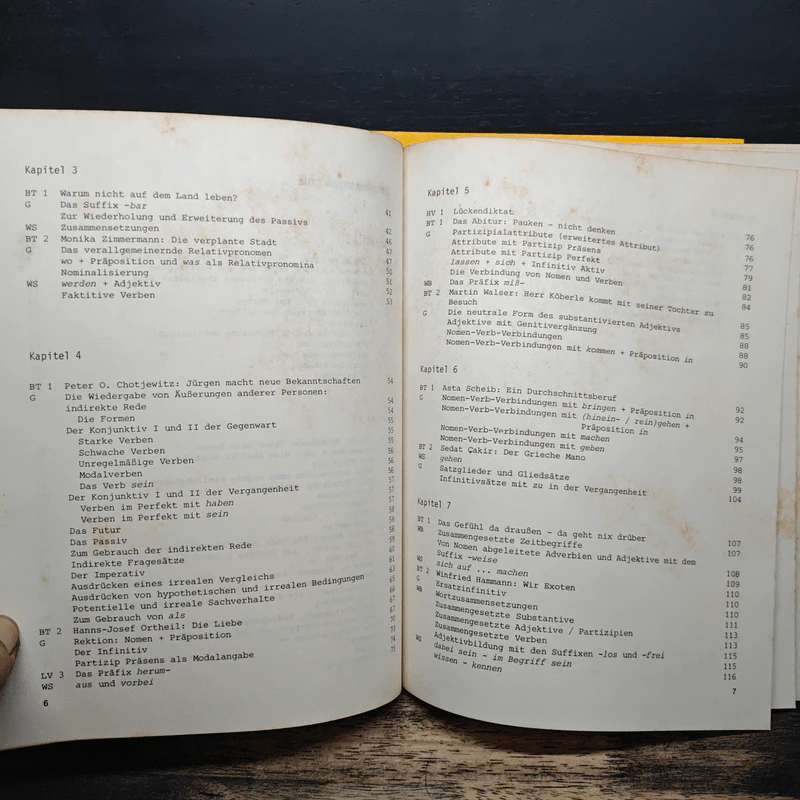 Kapitel 3
BT 1 Warum nicht auf dem Land leben?
G Das Suffix -bar 41
Zur Wiederholung und Erweiterung des Passivs
WS Zusammensetzungen 42
BT 2 Monika Zimmermann: Die verplante Stadt 46
G Das verallgemeinernde Relativpronomen 47
wo + Präposition und was als Relativpronomina 47
Nominalisierung 50
WS werden + Adjektiv 51
Faktitive Verben 52
53
Kapitel 4
BT 1 Peter O. Chotjewitz: Jürgen macht neue Bekanntschaften 54
G Die Wiedergabe von Äußerungen anderer Personen:
indirekte Rede 54
Die Formen 54
Der Konjunktiv I und II der Gegenwart 55
Starke Verben 55
Schwache Verben 55
Unregelmäßige Verben 56
Modalverben 56
Das Verb sein 56
Der Konjunktiv I und II der Vergangenheit 57
Verben im Perfekt mit haben 57
Verben im Perfekt mit sein 58
Das Futur 58
Das Passiv 58
Zum Gebrauch der indirekten Rede 59
Indirekte Fragesätze 60
Der Imperativ 61
Ausdrücken eines irrealen Vergleichs
Ausdrücken von hypothetischen und irrealen Bedingungen
Potentielle und irreale Sachverhalte
Zum Gebrauch von als
BT 2 Hanns-Josef Ortheil: Die Liebe
G Rektion: Nomen + Präposition
Der Infinitiv
Partizip Präsens als Modalangabe
LV 3 Das Präfix herum-
WS aus und vorbei
6
Kapitel 5
HV 1 Lückendiktat
BT 1 Das Abitur: Pauken - nicht denken 76
G Partizipialattribute (erweitertes Attribut) 76
Attribute mit Partizip Präsens 76
Attribute mit Partizip Perfekt 77
lassen + sich + Infinitiv Aktiv 79
Die Verbindung von Nomen und Verben 81
WB Das Präfix miß- 82
BT 2 Martin Walser: Herr Köberle kommt mit seiner Tochter zu 84
Besuch
G Die neutrale Form des substantivierten Adjektivs 85
Adjektive mit Genitivergänzung 85
Nomen-Verb-Verbindungen 88
Nomen-Verb-Verbindungen mit kommen + Präposition in 88
90
Kapitel 6
BT 1 Asta Scheib: Ein Durchschnittsberuf
G Nomen-Verb-Verbindungen mit bringen + Präposition in 92
Nomen-Verb-Verbindungen mit (hinein- / rein)gehen + 92
Präposition in
Nomen-Verb-Verbindungen mit machen 94
Nomen-Verb-Verbindungen mit geben 95
BT 2 Sedat Çakir: Der Grieche Mano 97
WS gehen 98
G Satzglieder und Gliedsätze 98
Infinitivsätze mit zu in der Vergangenheit 99
104
Kapitel 7
BT 1 Das Gefühl da draußen - da geht nix drüber
WB Zusammengesetzte Zeitbegriffe 107
Von Nomen abgeleitete Adverbien und Adjektive mit dem 107
Suffix -weise
WS sich auf ... machen 108
BT 2 Winfried Hammann: Wir Exoten 109
G Ersatzinfinitiv 110
WB Wortzusammensetzungen 110
Zusammengesetzte Substantive 110
Zusammengesetzte Adjektive / Partizipien 111
Zusammengesetzte Verben 113
Adjektivbildung mit den Suffixen -los und -frei 113
WS dabei sein - im Begriff sein 115
wissen - kennen 115
116
7